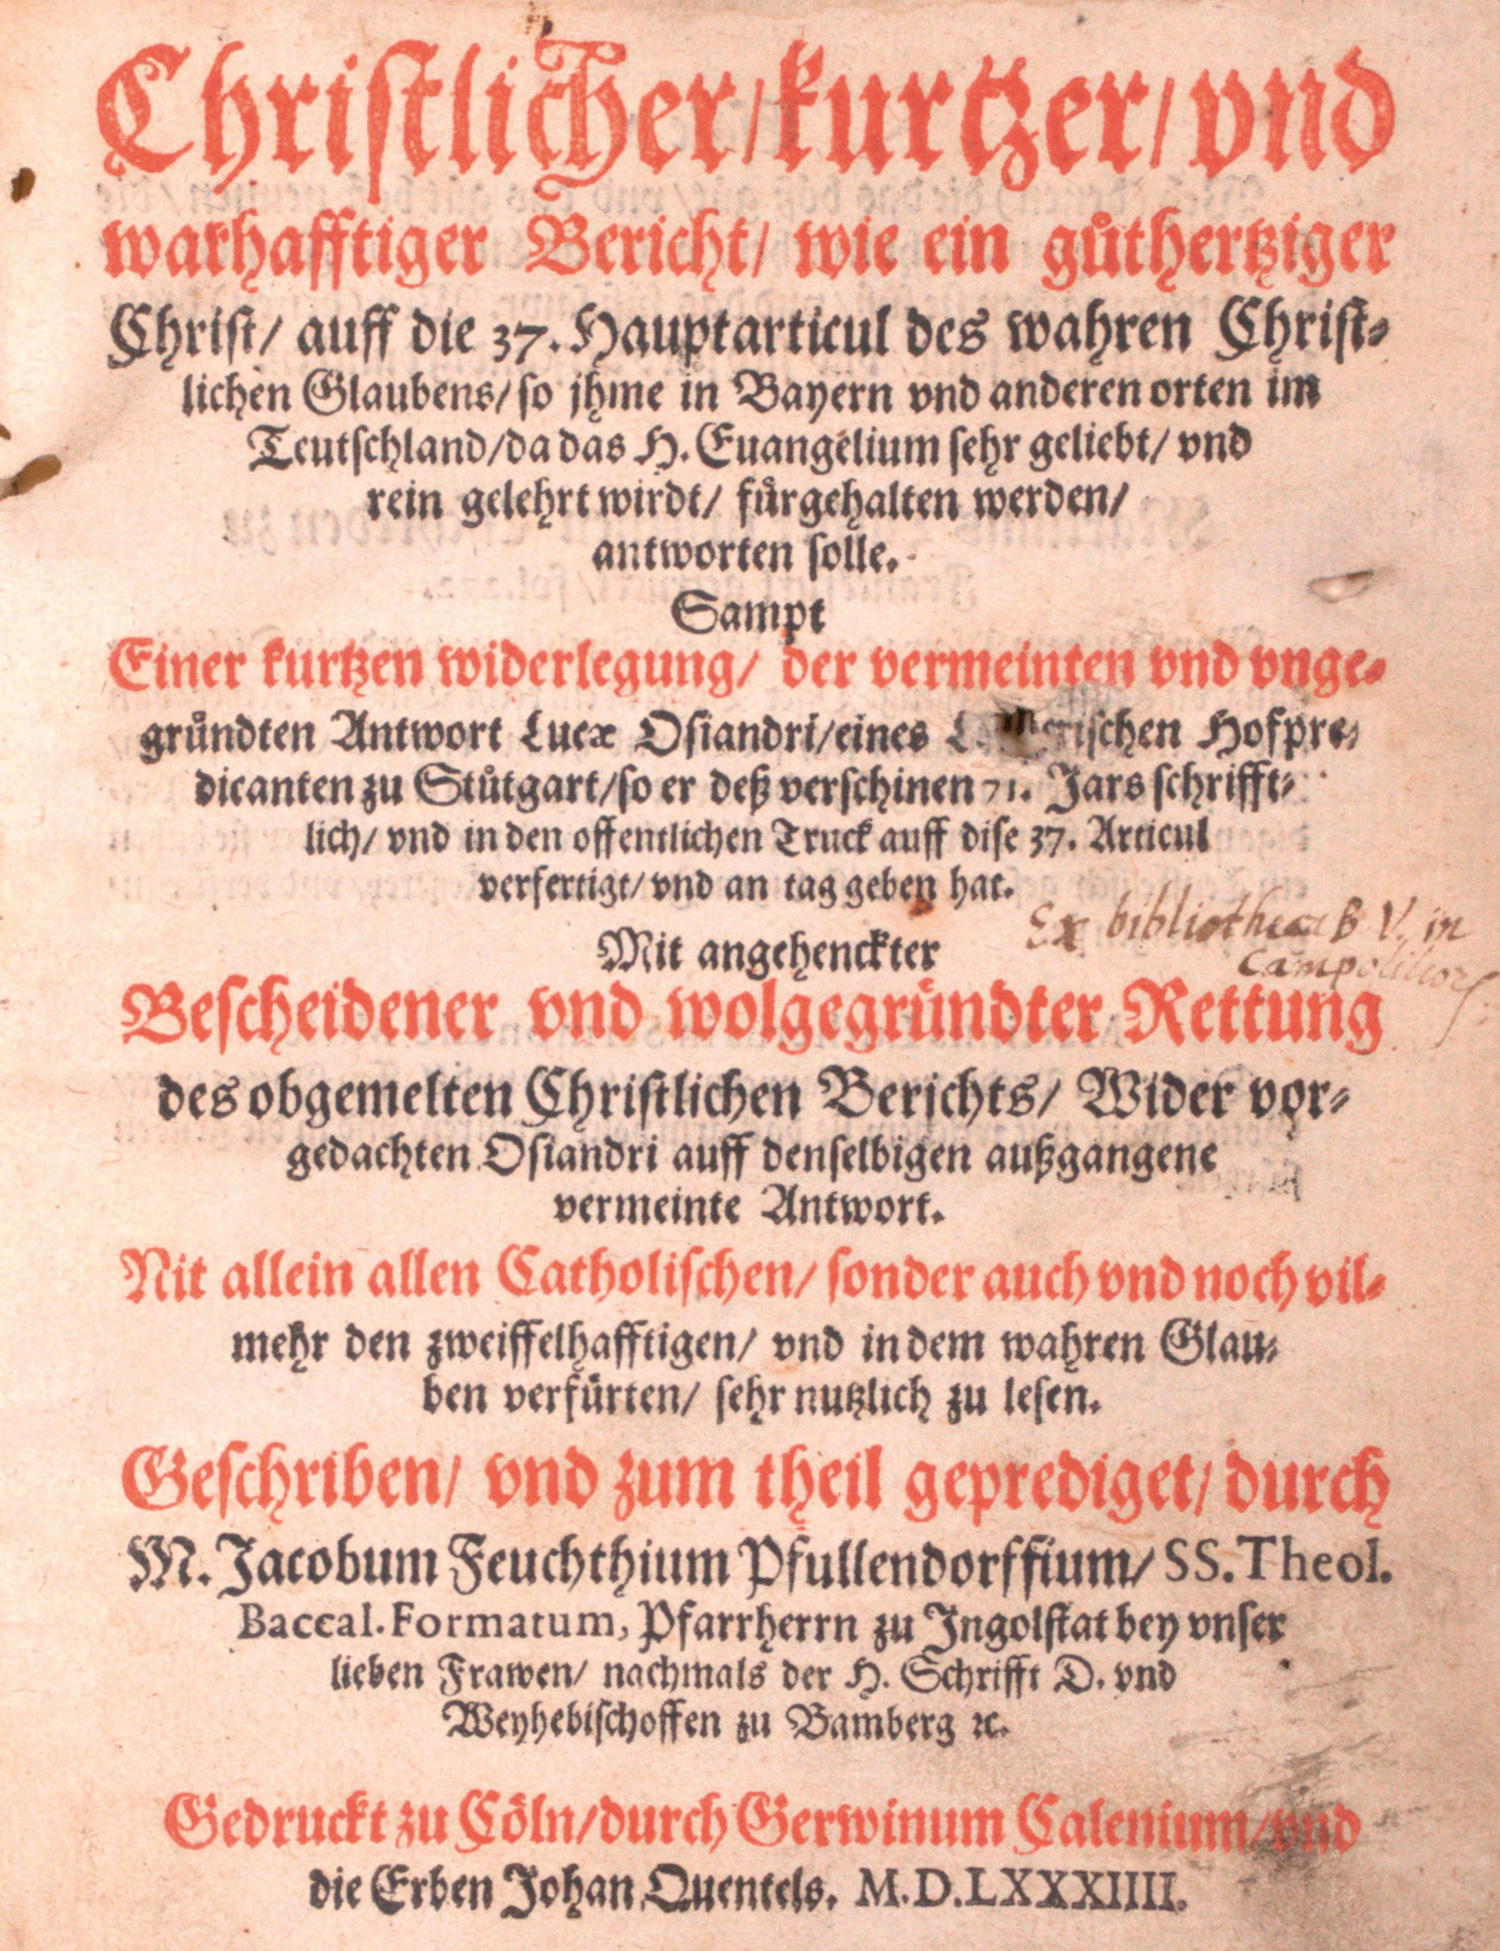 Christlicher/ kurtzer/ vnd
warhafftiger Bericht/ wie ein gůthertziger
Christ/ auff die 37. Hauptarticul des wahren Christ-
lichen Glaubens/ so jhme in Bayern vnd anderen orten im
Teutschland/ da das H. Euangelium sehr geliebt/ vnd
rein gelehrt wirdt/ fůrgehalten werden/
antworten solle.
Sampt
Einer kurtzen widerlegung/ der vermeinten vnd vnge-
gründten Antwort Lucæ Osiandri/ eines Hofpre-
dicanten zu Stůtgart/ so er deß verschinen 71. Jars schrifft-
lich/ vnd in den offentlichen Truck auff dise 37. Articul
verfertigt/ vnd an tag geben hat.
Ex bibliotheca B V. in
Mit angehenckter
Bescheidener vnd wolgegründter Rettung
des obgemelten Christlichen Berichts/ Wider vor-
gedachten Osiandri auff denselbigen außgangene
vermeinte Antwort.
Nit allein allen Catholischen/ sonder auch vnd noch vil-
mehr den zweiffelhafftigen/ vnd in dem wahren Glau-
ben verfürten/ sehr nutzlich zu lesen.
Geschriben/ vnd zum theil geprediget/ durch
M. Jacobum Feuchthium Pfullendorffium/ SS. Theol.
Baccal. Formatum, Pfarrherrn zu Ingolstat bey vnser
lieben Frawen/ nachmals der H. Schrifft D. vnd
Weyhebischoffen zu Bamberg ꝛc.
Gedruckt zu Cöln/ durch Gerwinum Calenium/ vnd
die Erben Johan Quentels. M.D.LXXXIIII.